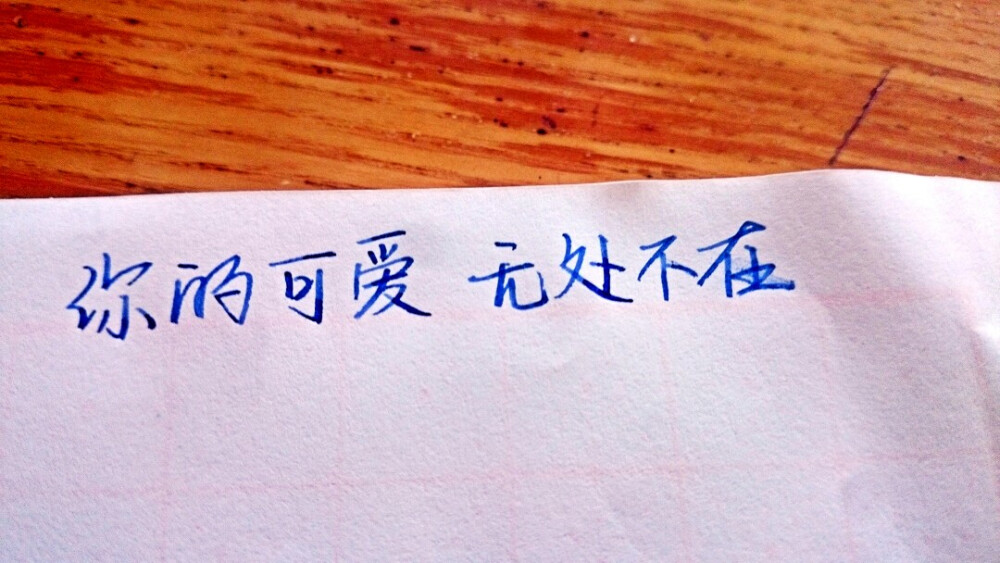 你的可爱 无处不在